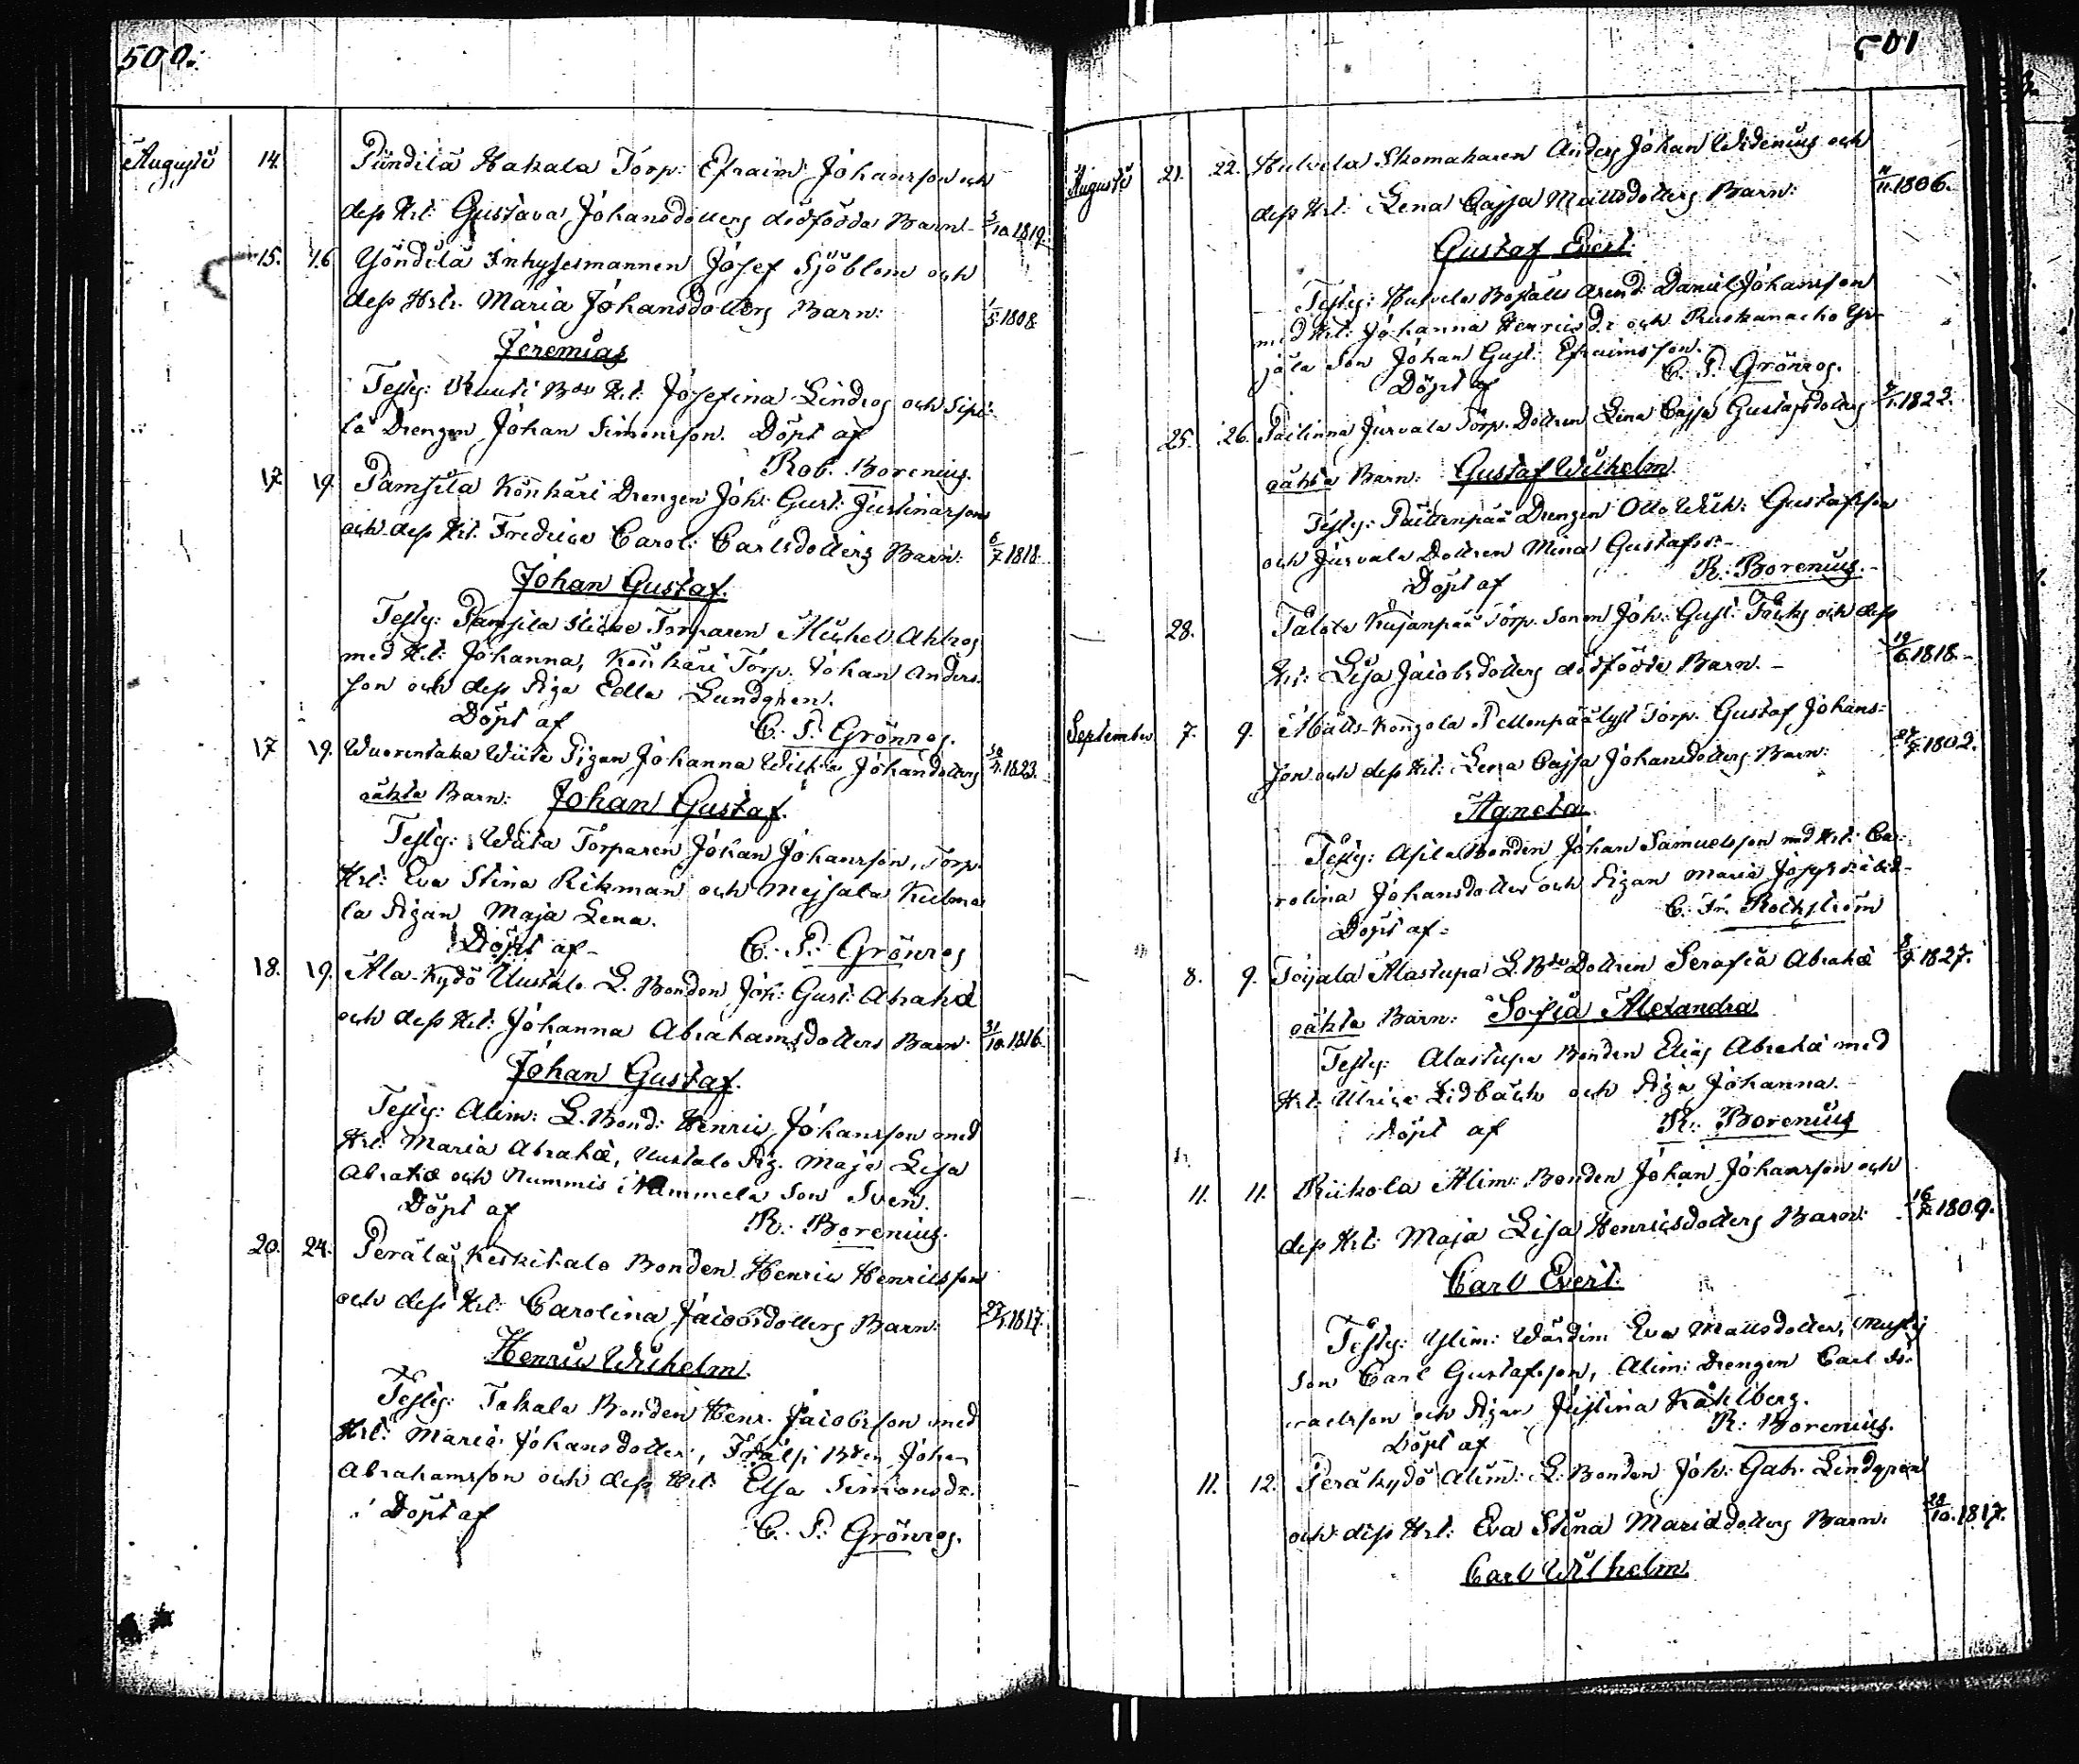 500.
Augusti 14. Pündilä Hakala Torp: Efraim Johansson och
dess Hst: Gustava Johansdotters dödfödda Barn 3/10 1819.
15. 16 Yöndilä Inhysesmannen Josef Sjöblom och
dess Hst: Maria Johansdotters Barn: 1/5 1808
Jeremias
Testes: Ruuti Bds Hst: Josefina Lindros och Sipi-
lä Drengen Johan Simonsson. Döpt af
Rob. Borenius.
17 19 Pamsila Könkäri Drengen Joh: Gust: Justinarson
och dess Hst. Fredrica Carol: Carlsdotters Barn: 6/7 1818
Johan Gustaf.
Testes: Pamsila Torparen Michel Ahlros
med Hst: Johanna, Könkäri Torp. Johan Anders-
son och dess Piga Edla Lundgren.
Döpt af C. P. Grönros.
17 19. Wuorentaka Wiita Pigan Johanna Wilh:a Johansdotters 1823.
oäkta Barn: Johan Gustaf.
Testes: Wiita Torparen Johan Johansson, Torp.
Hst: Eva Stina Rikman och Mejsala Kulma
la Pigan Maja Lena.
Döpt af C. P. Grönros
18. 19. Ala-Kydö Uustalo L. Bonden Joh: Gust: Abrahæ
och dess Hst: Johanna Abrahamsdotters Barn 31/10 1816.
Johan Gustaf.
Testes: Alim: L. Bond: Henric Johansson med
Hst: Maria Abrahæ, Uustalo Pig. Maja Lisa
Abrahæ och Nummis i Nummela Son Sven.
Döpt af R. Borenius.
20. 24. Perälä Keskitalo Bonden Henric Henricsson
och dess Hst: Carolina Jacobsdotters Barn: 27/1 1817.
Henric Wilhelm.
Testes: Takala Bonden Henr. Jacobsson med
Hst: Maria Johansdotter, Bden Johan
Abrahamsson och dess Hst: Elsa Simonsdr.
Döpt af C. P. Grönros.
501
Augusti 21. 22. Hulvela Skomakaren Anders Johan Widenius och
dess Hst: Lena Cajsa Mattsdotters Barn: 11/11 1806.
Gustaf Evert
Testes: Hulvela Boställs Arend: Daniel Johansson
med Hst: Johanna Henricsdr och Ruskanacko Yr-
jälä Son Johan Gust: Efraimsson.
Döpt af C. P. Grönros.
25. 26. Pailinna Jurvala Torp. Dottren Lena Cajsa Gustafsdotters 1822.
oäkta Barn: Gustaf Wilhelm
Testes: Drengen Otto Wilh: Gustafsson
och Jurvala Dottren Mina Gustafsdr.
Döpt af R. Borenius.
28. Talola Kujanpää Torp. Sonen Joh: Gust: och dess
Hst: Lisa Jacobsdotters dödfödde Barn. 19/6 1818.
September 7. 9. Matts-Konzola Pellonpäälyst Torp. Gustaf Johans-
son och dess Hst: Lena Cajsa Johansdotters Barn: 1802.
Agneta
Testes: Asila Bonden Johan Samuelsson med Hst: Ca-
rolina Johansdotter och Pigan Maria
Döpt af C. Fr. Rockström
8. 9. Toijala Alastupa L. Bds Dottren Serafia Abrahæ 8/9 1827.
oäkta Barn: Sofia Alexandra
Testes: Alastupa Bonden Elias Abrahæ med
Hst: Ulrica Lidbäck och Piga Johanna.
Döpt af R. Borenius
11. 11. Riikola Alim: Bonden Johan Johansson och
dess Hst: Maja Lisa Henricsdotters Barn: 1809.
Carl Evert.
Testes: Ylim: Wärdin Eva Mattsdotter,
Son Carl Gustafsson, Alim: Drengen Carl Is-
raelsson och Pigan Justina Kåhlberg.
Döpt af R. Borenius.
11. 12. Peräkydö Alim: L. Bonden Joh: Gabr. Lindgren
och dess Hst: Eva Stina Mariædotters Barn. 28/10. 1817.
Carl Wilhelm